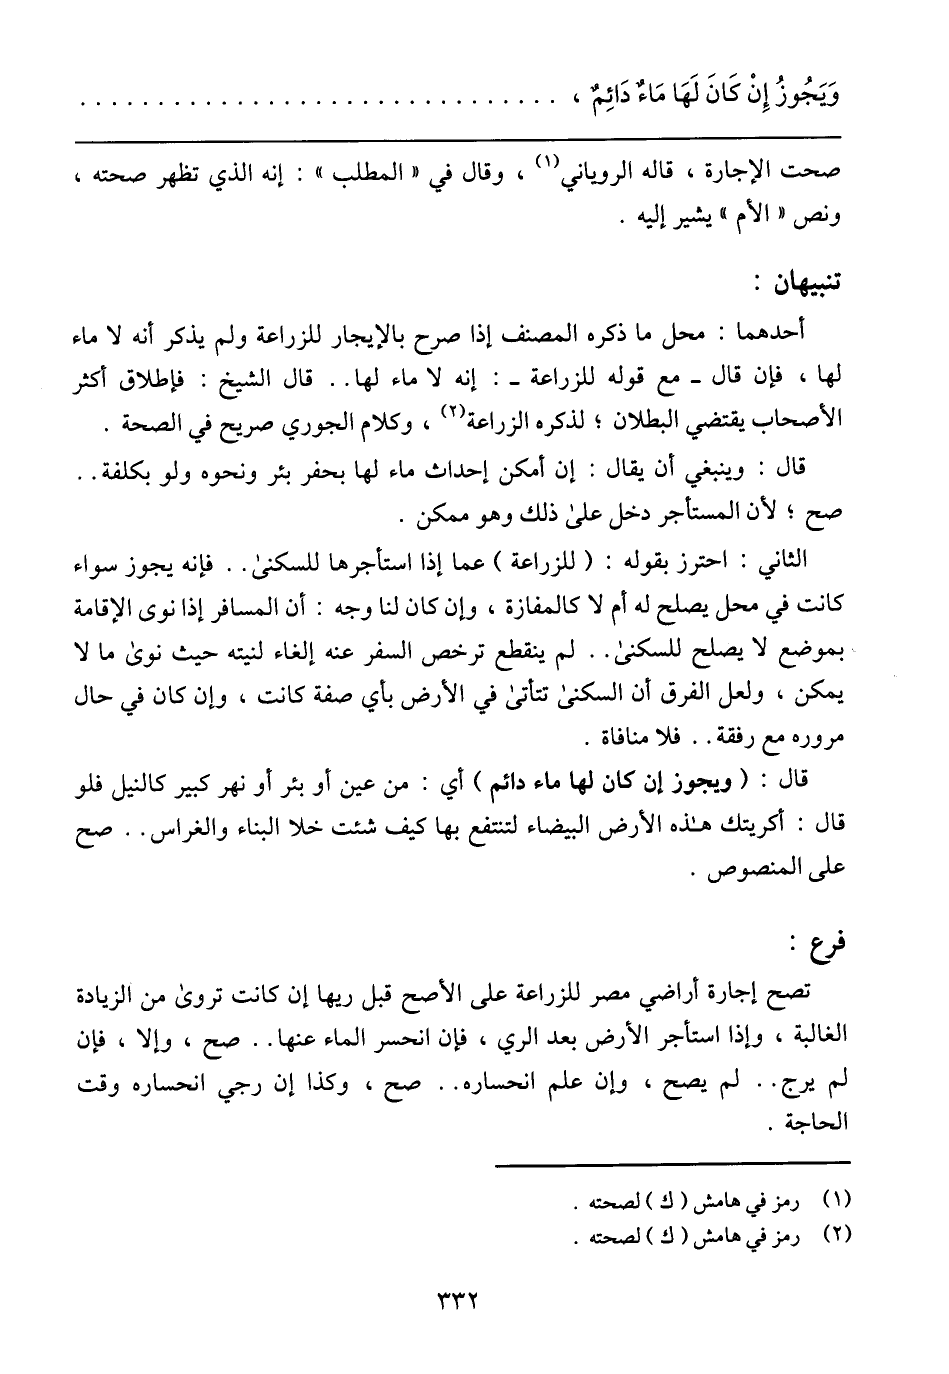 وَيَجُوزُ إِنْ كَانَ لَهَا مَاءٌ دَائِمٌ ، . . . . . . . . . . . . . . . . . . . . . . . . . . . . . . .
صحت الإجارة ، قاله الروياني(١) ، وقال في « المطلب » : إنه الذي تظهر صحته ،
ونص « الأم » يشير إليه .
تنبيهان :
أحدهما : محل ما ذكره المصنف إذا صرح بالإيجار للزراعة ولم يذكر أنه لا ماء
لها ، فإن قال ـ مع قوله للزراعة ـ : إنه لا ماء لها.. قال الشيخ : فإطلاق أكثر
الأصحاب يقتضي البطلان ؛ لذكره الزراعة(٢) ، وكلام الجوري صريح في الصحة .
قال : وينبغي أن يقال : إن أمكن إحداث ماء لها بحفر بئر ونحوه ولو بكلفة..
صح ؛ لأن المستأجر دخل علىٰ ذلك وهو ممكن .
الثاني : احترز بقوله : ( للزراعة ) عما إذا استأجرها للسكنىٰ.. فإنه يجوز سواء
كانت في محل يصلح له أم لا كالمفازة ، وإن كان لنا وجه : أن المسافر إذا نوى الإقامة
بموضع لا يصلح للسكنىٰ.. لم ينقطع ترخص السفر عنه إلغاء لنيته حيث نوىٰ ما لا
يمكن ، ولعل الفرق أن السكنىٰ تتأتىٰ في الأرض بأي صفة كانت ، وإن كان في حال
مروره مع رفقة.. فلا منافاة .
قال : ( ويجوز إن كان لها ماء دائم ) أي : من عين أو بئر أو نهر كبير كالنيل فلو
قال : أكريتك هـٰذه الأرض البيضاء لتنتفع بها كيف شئت خلا البناء والغراس.. صح
على المنصوص .
فرع :
تصح إجارة أراضي مصر للزراعة على الأصح قبل ريها إن كانت تروىٰ من الزيادة
الغالبة ، وإذا استأجر الأرض بعد الري ، فإن انحسر الماء عنها.. صح ، وإلا ، فإن
لم يرج.. لم يصح ، وإن علم انحساره.. صح ، وكذا إن رجي انحساره وقت
الحاجة .
(١) رمز في هامش ( ك ) لصحته .
(٢) رمز في هامش ( ك ) لصحته .
٣٣٢